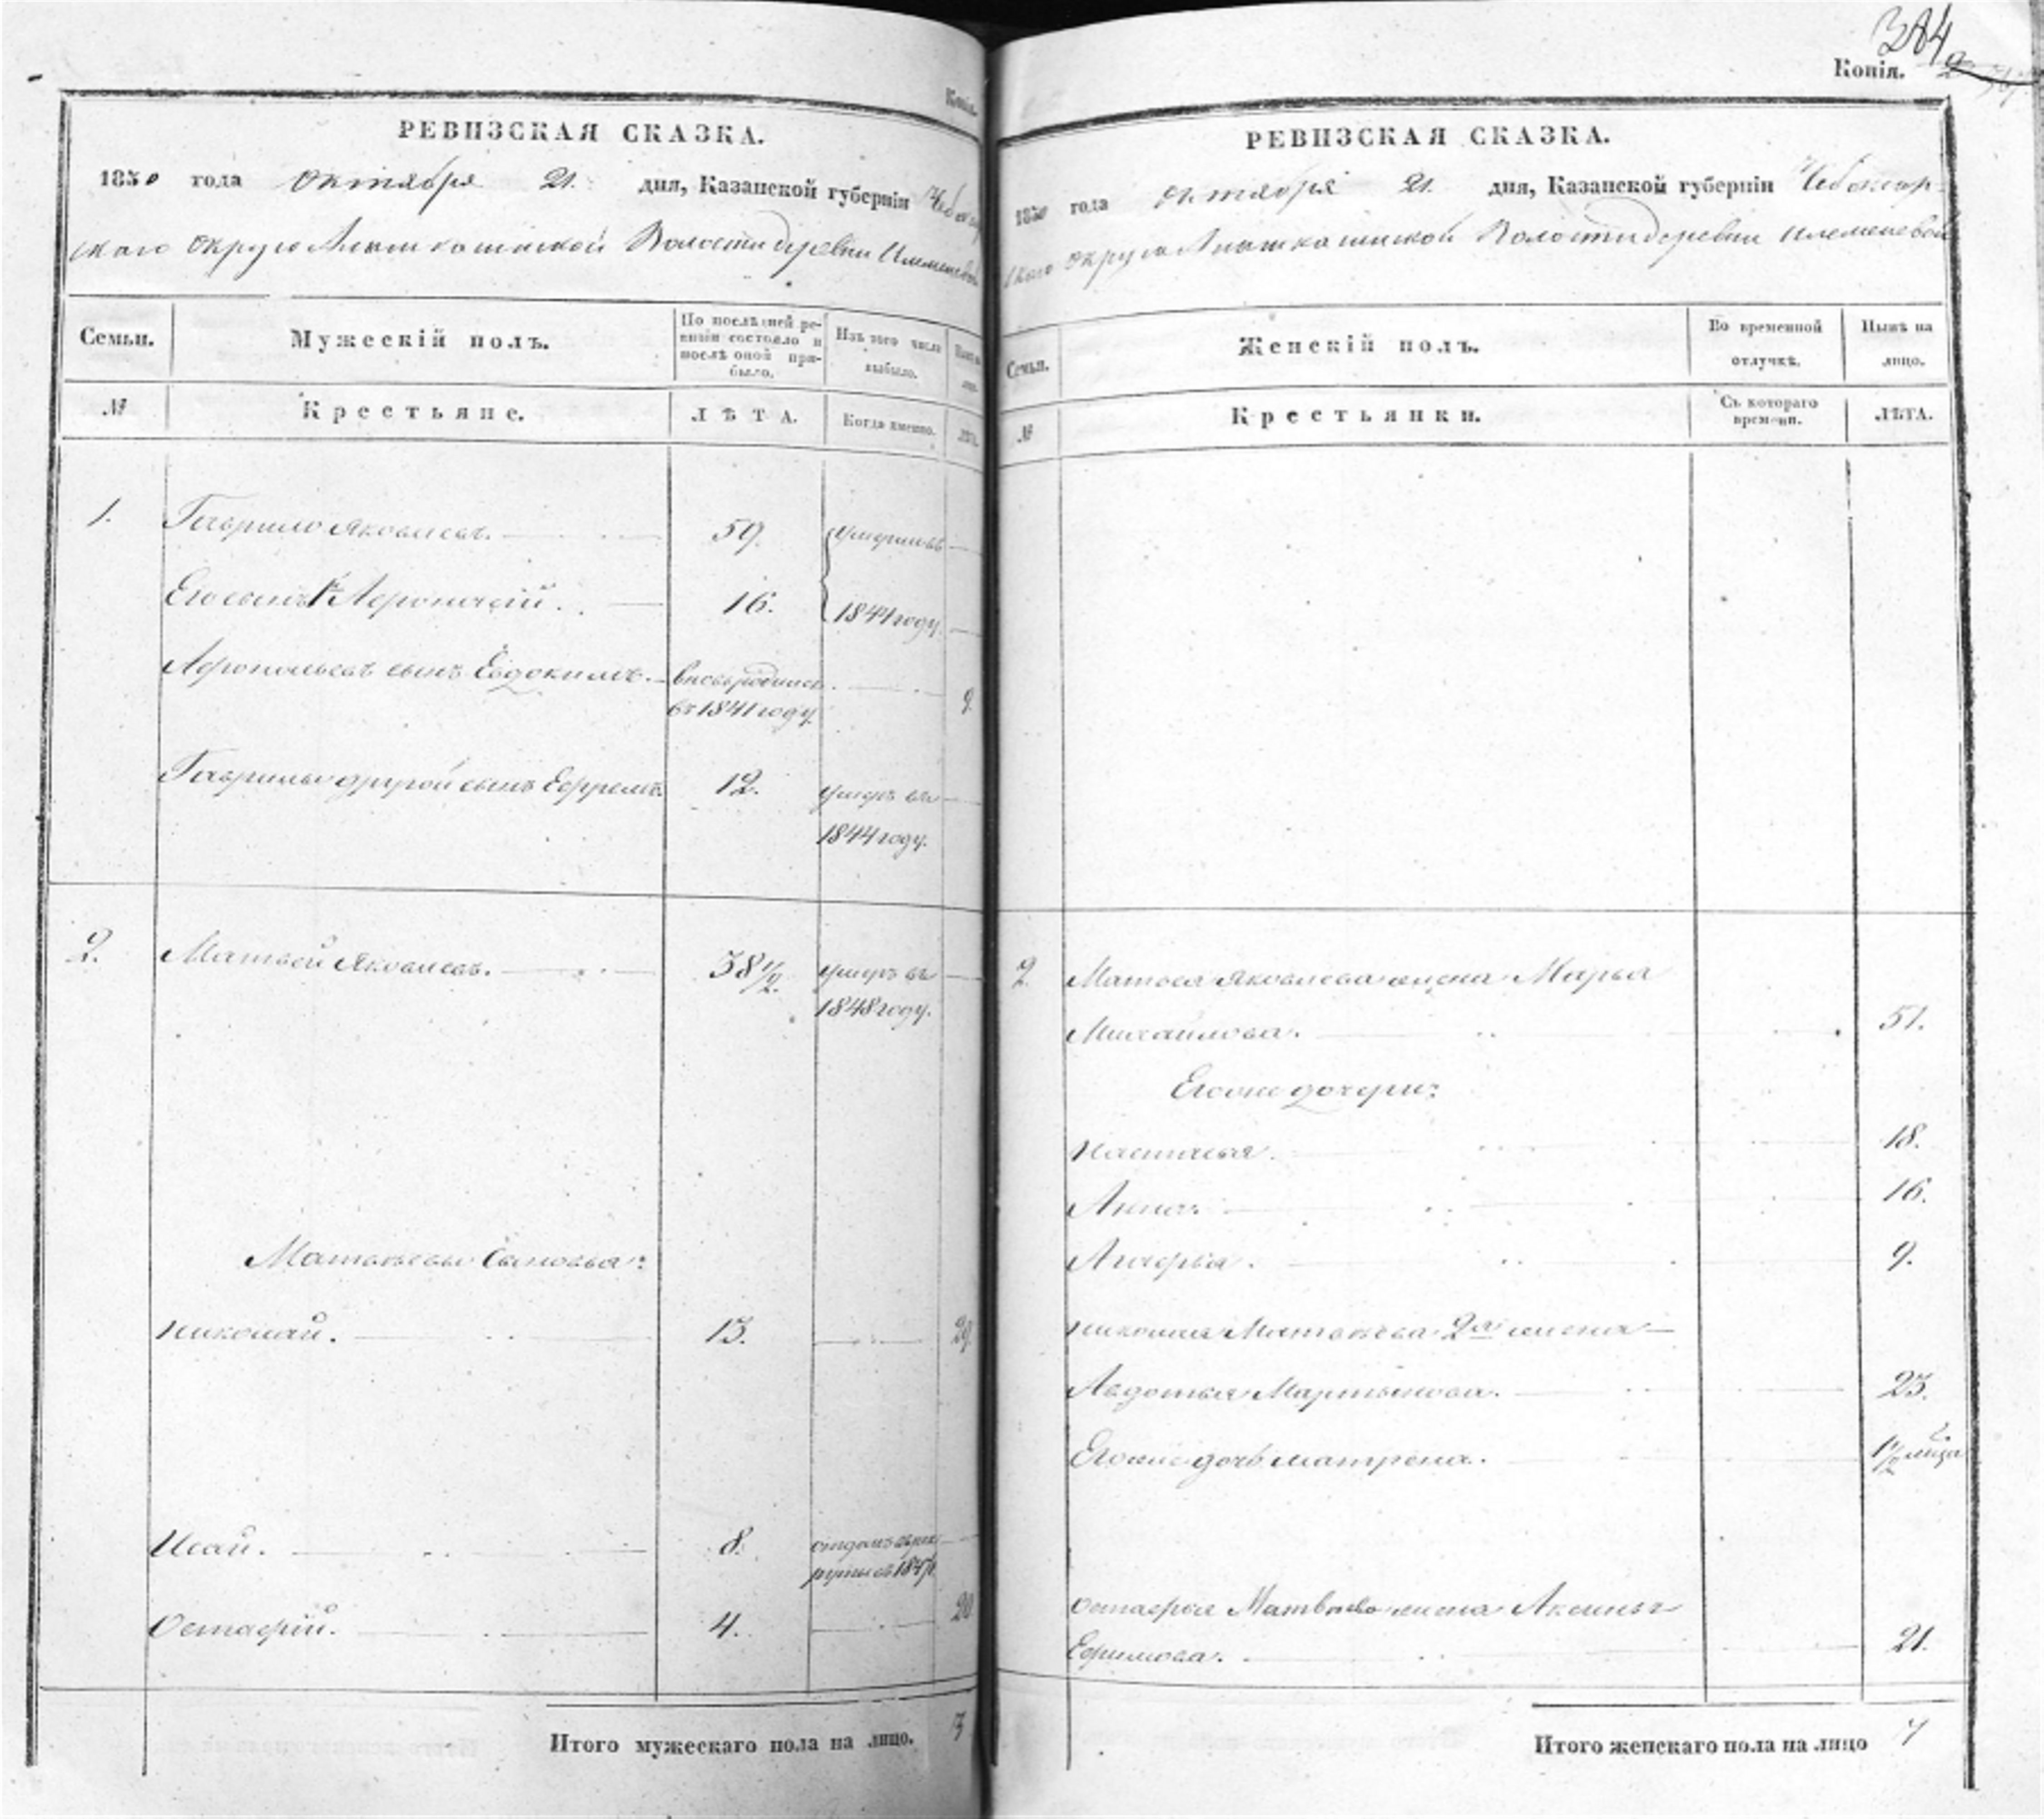 Копія.
РЕВИЗСКАЯ СКАЗКА.
1850 года Октября 21. дня, Казанской губерніи Чебокса
скаго округа Волости деревни
Семьи.
Мужескій полъ.
По послѣдней ре-
визіи состояло и
послѣ оной при-
было.
Изъ того числа
выбыло.
№
Крестьяне.
ЛѢТА.
Когда именно.
ЛѢТА.
1.
Гаврило Яковлевъ.
59.
умерли въ
Его сынъ 1й Аѳонасій.
16.
1844 году.
Аѳонасьевъ сынъ Евдокимъ.
вновь родился
въ 1841 году.
9.
Гаврилы другой сынъ Ефремъ.
12.
умеръ въ
1844 году.
2.
Матвей Яковлевъ.
38 1/2.
умеръ въ
1848 году.
Матвѣевы сыновья:
Николай.
13.
29.
Исай.
8.
отданъ въ рек
руты въ 1847
Остафій.
4.
20
Итого мужескаго пола на лицо. 3
384
Копія.
РЕВИЗСКАЯ СКАЗКА.
1850 года октября 21. дня, Казанской губерніи Чебоксар-
скаго округа Волости деревни
Семьи.
Женскій полъ.
Во временной
отлучкѣ.
Нынѣ на
лицо.
№
Крестьянки.
Съ котораго
времени.
ЛѢТА.
2.
Матвея Яковлева жена Марья
Михайлова.
51.
Егоже дочери:
Настасья.
18.
Анна.
16.
Агафья.
9.
Николая Матвѣева 2я жена
Авдотья Мартынова.
23.
Егоже дочь матрена.
1/2 мѣца
Остафья Матвѣева жена Аксинья
Ефимова.
21.
Итого женскаго пола на лицо 7